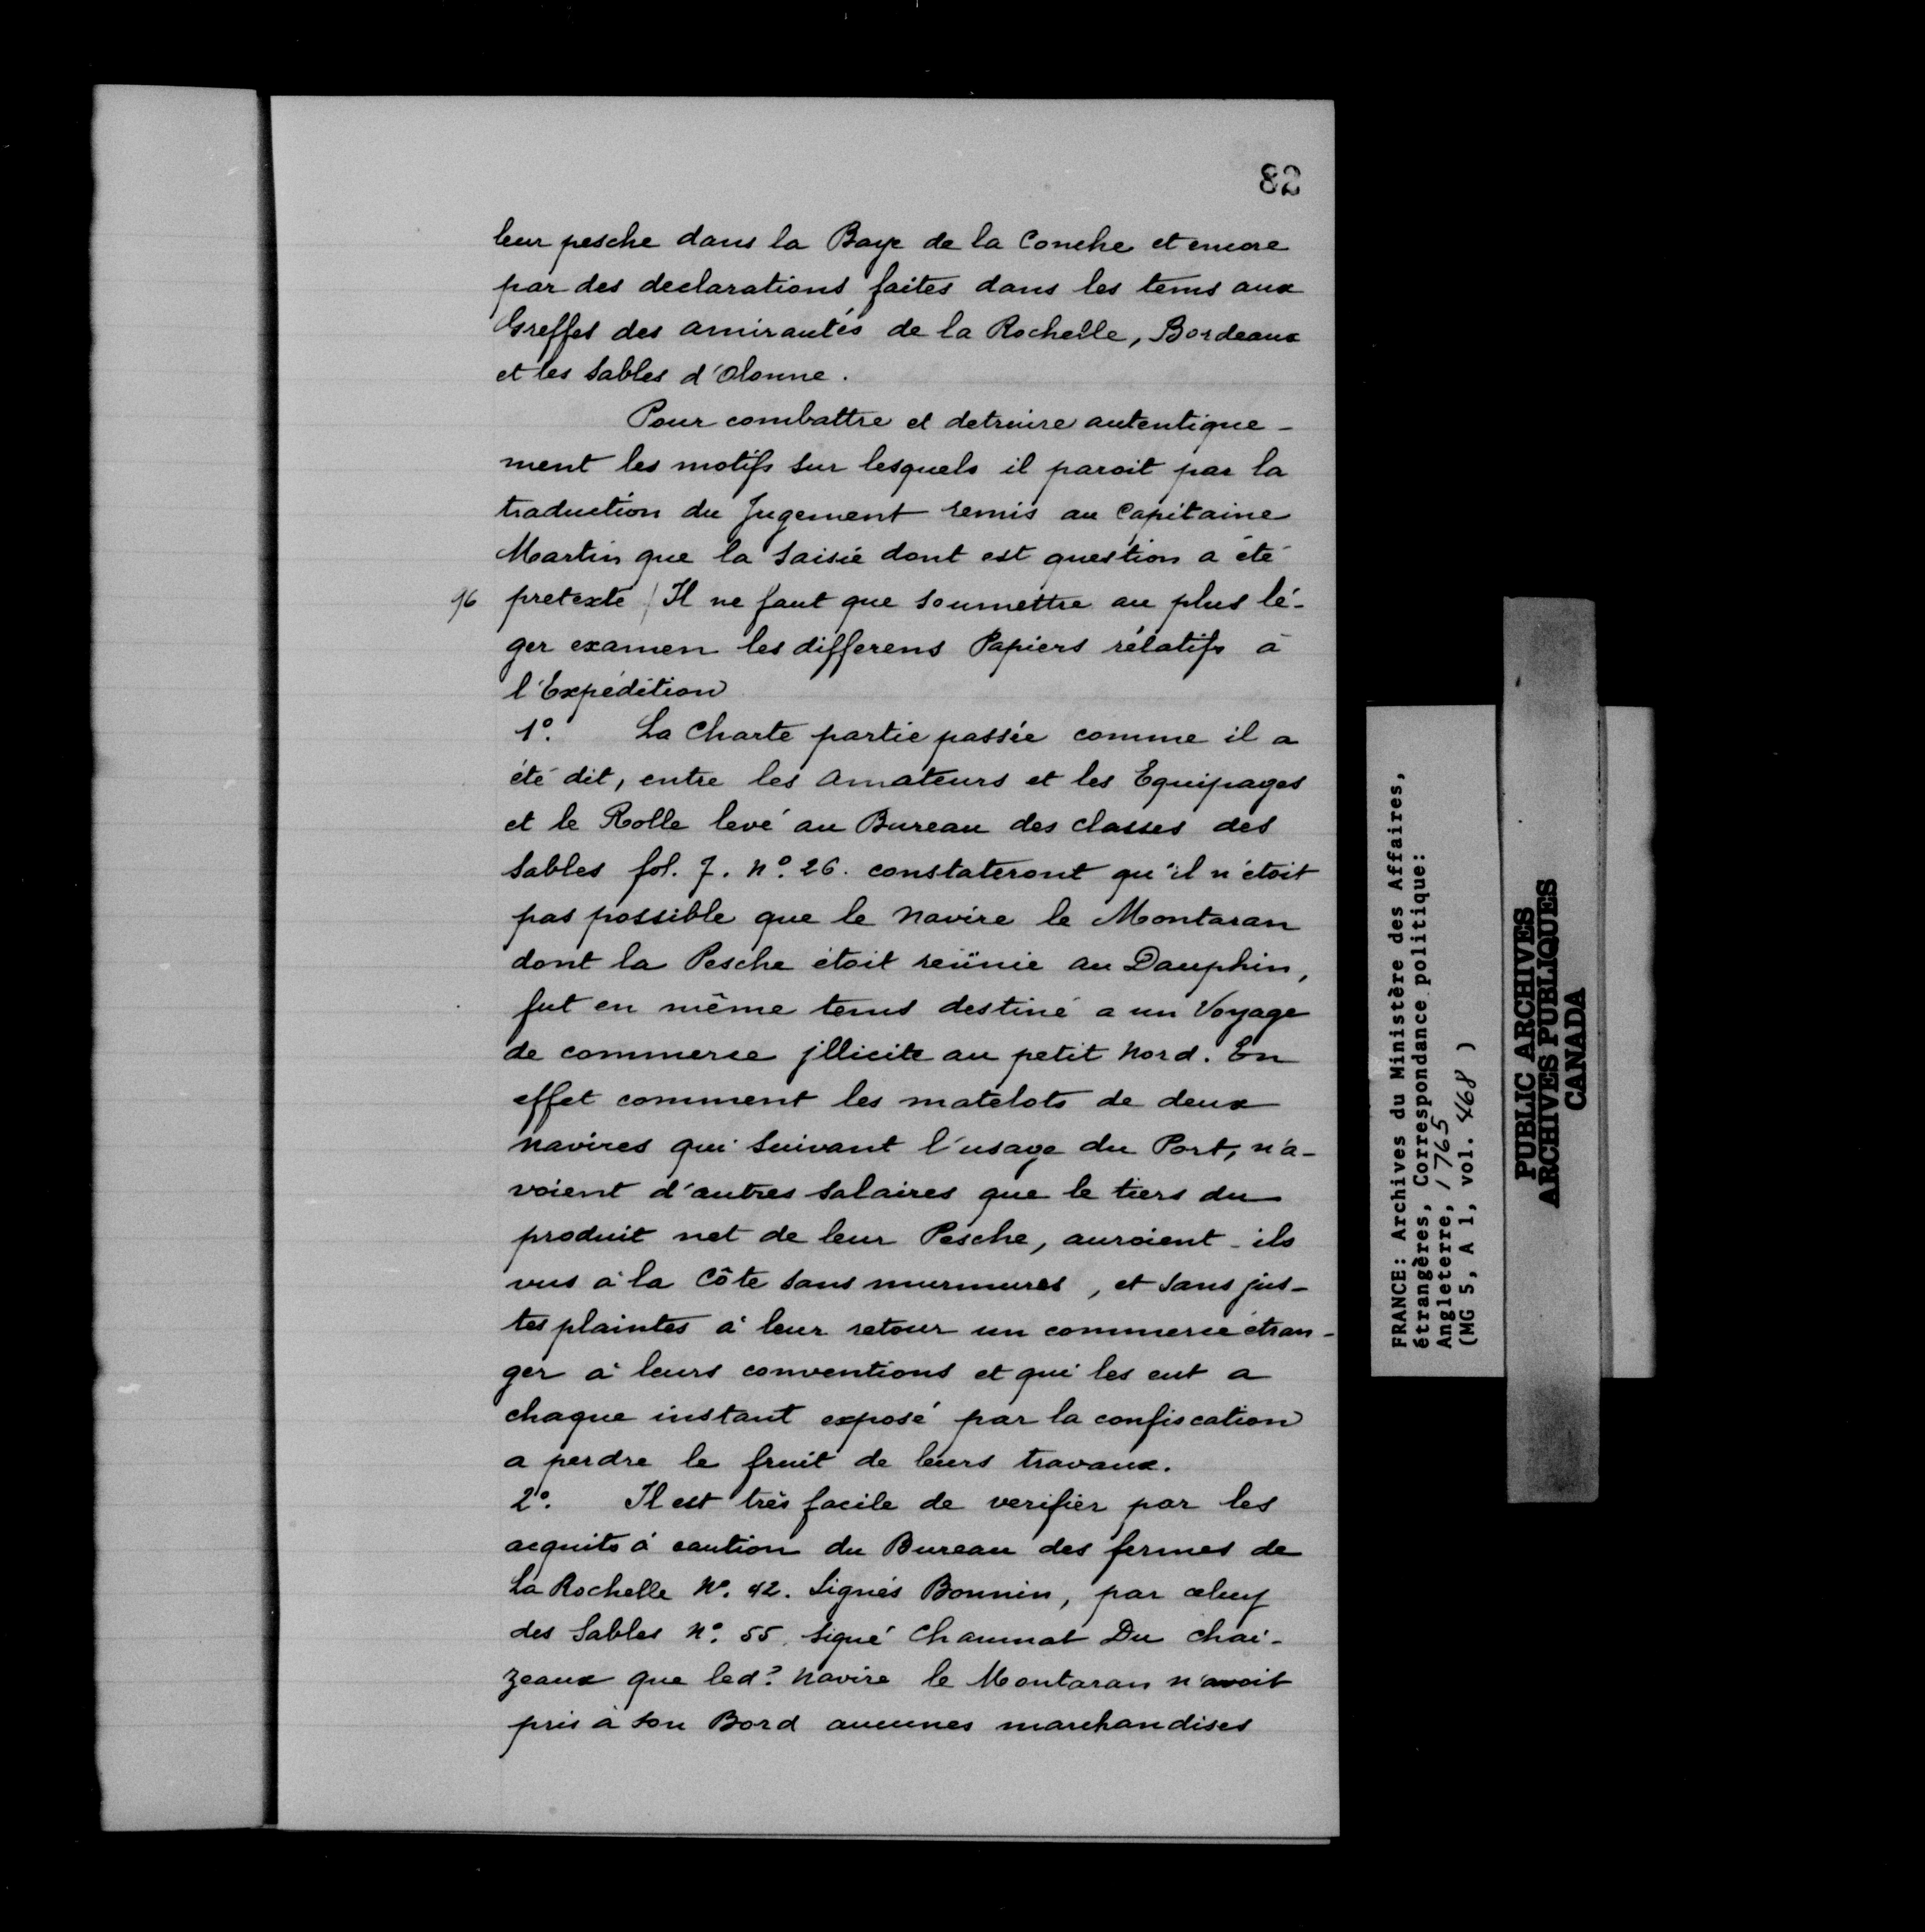 82
leur pesche dans la Baye de la Conche et encore
par des declarations faites dans les tems aux
Greffes des amirautés de la Rochelle, Bordeaux
et les Sables d'Olonne.
Pour combattre et detruire autentique-
ment les motifs sur lesquels il paroit par la
traduction du Jugement remis au Capitaine
Martin que la Saisie dont est question a été
96 pretexté / Il ne faut que soumettre au plus lé-
ger examen les differens Papiers rélatifs à
l'Expédition
1º. La Charte partie passée comme il a
été dit, entre les Amateurs et les Equipages
et le Rolle levé au Bureau des classes des
Sables fol. 7. nº. 26. constateront qu'il n'étoit
pas possible que le Navire le Montaran
dont la Pesche étoit reünie au Dauphin,
fut en même tems destiné a un Voyage
de commerce jllicite au petit Nord. En
effet comment les matelots de deux
Navires qui suivant l'usage du Port, n'a-
voient d'autres salaires que le tiers du
produit net de leur Pesche, auroient-ils
vus à la Côte sans murmures, et sans jus-
tes plaintes à leur retour un commerce étran-
ger à leurs conventions et qui les eut a
chaque instant exposé par la confiscation
a perdre le fruit de leurs travaux.
2º. Il est très facile de verifier par les
acquits à caution du Bureau des fermes de
La Rochelle Nº. 42. Signés Bonnin, par celuy
des Sables Nº. 55. signé Chaumat Du Chai-
zeaux que led? Navire le Montaran n'avoit
pris à son Bord aucunes marchandises
FRANCE: Archives du Ministère des Affaires,
étrangères, Correspondance politique:
Angleterre, 1765
(MG 5, A 1, vol. 468 )
PUBLIC ARCHIVES
ARCHIVES PUBLIQUES
CANADA